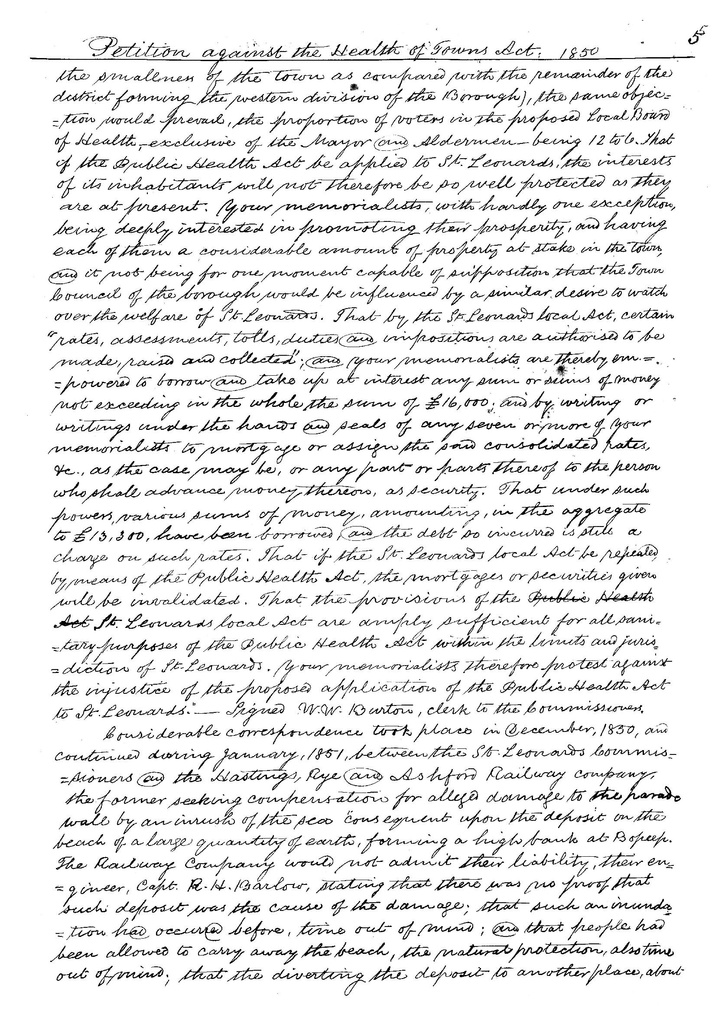 Petition against the Health of Towns Act. 1850
5
the smallness of the town as compared with the remainder of the
district forming the western division of the Borough), the same objec=
=tion would prevail, the proportion of voters in the proposed Local Board
of Health, exclusive of the Mayor and Aldermen – being 12 to 6. That
if the Public Health Act be applied to St. Leonards, the interests
of its inhabitants will not therefore be so well protected as they
are at present. Your memorialists, with hardly one exception,
being deeply interested in promoting their prosperity, and having
each of them a considerable amount of property at stake in the town,
and it not being for one moment capable of supposition that the Town
Council of the borough would be influenced by a similar desire to watch
over the welfare of St. Leonards. That by the St. Leonards local Act, certain
"rates, assessments, tolls, duties and impositions are authorised to be
made, raised and collected"; and your memorialists are thereby em=
=powered to borrow and take up at interest any sum or sums of money
not exceeding in the whole the sum of £16,000; and by writing or
writings under the hands and seals of any seven or more of your
memorialists to mortgage or assign the said consolidated rates,
&c., as the case may be, or any part or parts thereof to the person
who shall advance money thereon, as security. That under such
powers, various sums of money, amounting, in the aggregate
to £13,300, have been borrowed, and the debt so incurred is still a
charge on such rates. That if the St. Leonards local Act be repealed,
by means of the Public Health Act, the mortgages or securities given
will be invalidated. That the provisions of the Public Health
Act St. Leonards local Act are amply sufficient for all sani=
=tary purposes of the Public Health Act within the limits and juris=
=diction of St. Leonards. Your memorialists therefore protest against
the injustice of the proposed application of the Public Health Act
to St. Leonards." — Signed W.W. Burton, clerk to the Commissioners.
Considerable correspondence took place in December, 1850, and
continued during January, 1851, between the St. Leonards Commis=
=sioners and the Hastings, Rye and Ashford Railway company,
the former seeking compensation for alleged damage to the parade
wall by an inrush of the sea consequent upon the deposit on the
beach of a large quantity of earth, forming a high bank at Bopeep.
The Railway Company would not admit their liability, their en=
=gineer, Capt. R. H. Barlow, stating that there was no proof that
such deposit was the cause of the damage; that such an inunda=
=tion had occurred before, time out of mind; and that people had
been allowed to carry away the beach, the natural protection, also time
out of mind; that the diverting the deposit to another place, about